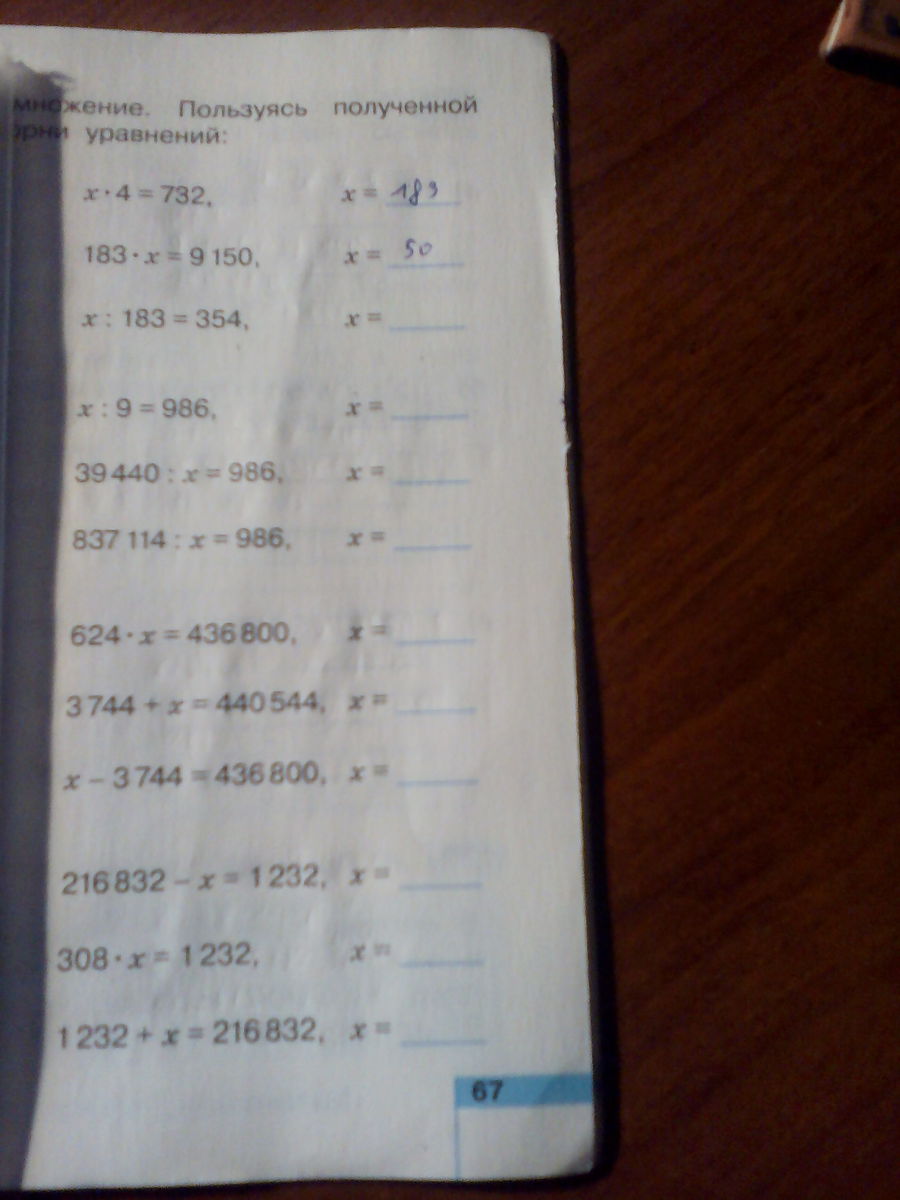 множение. Пользуясь полученной
орни уравнений:
x · 4 = 732, x = 183
183 · x = 9 150, x = 50
x : 183 = 354, x =
x : 9 = 986, x =
39 440 : x = 986, x =
837 114 : x = 986, x =
624 · x = 436 800, x =
3 744 + x = 440 544, x =
x – 3 744 = 436 800, x =
216 832 – x = 1 232, x =
308 · x = 1 232, x =
1 232 + x = 216 832, x =
67